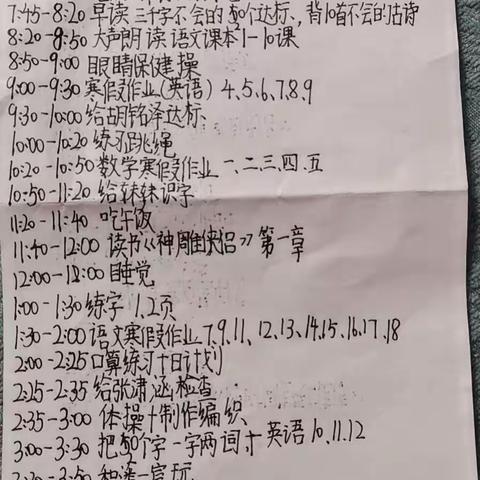 7:45-8:20 早读三千字不会的50个达标、背10首不会的古诗
8:20-8:50 大声朗读语文课本1-10课
8:50-9:00 眼睛保健操
9:00-9:30 寒假作业(英语) 4、5、6、7、8、9
9:30-10:00 给胡铭泽达标
10:00-10:20 练习跳绳
10:20-10:50 数学寒假作业 一、二、三、四、五
10:50-11:20 给妹妹识字
11:20-11:40 吃午饭
11:40-12:00 读书《神雕侠侣》第一章
12:00-1:00 睡觉
1:00-1:30 练字 1、2页
1:30-2:00 语文寒假作业 7、9、11、12、13、14、15、16、17、18
2:00-2:25 口算练习十日计划
2:25-2:35 给张潇涵检查
2:35-3:00 体操+制作编织
3:00-3:30 把50个字一字两词+英语10、11、12